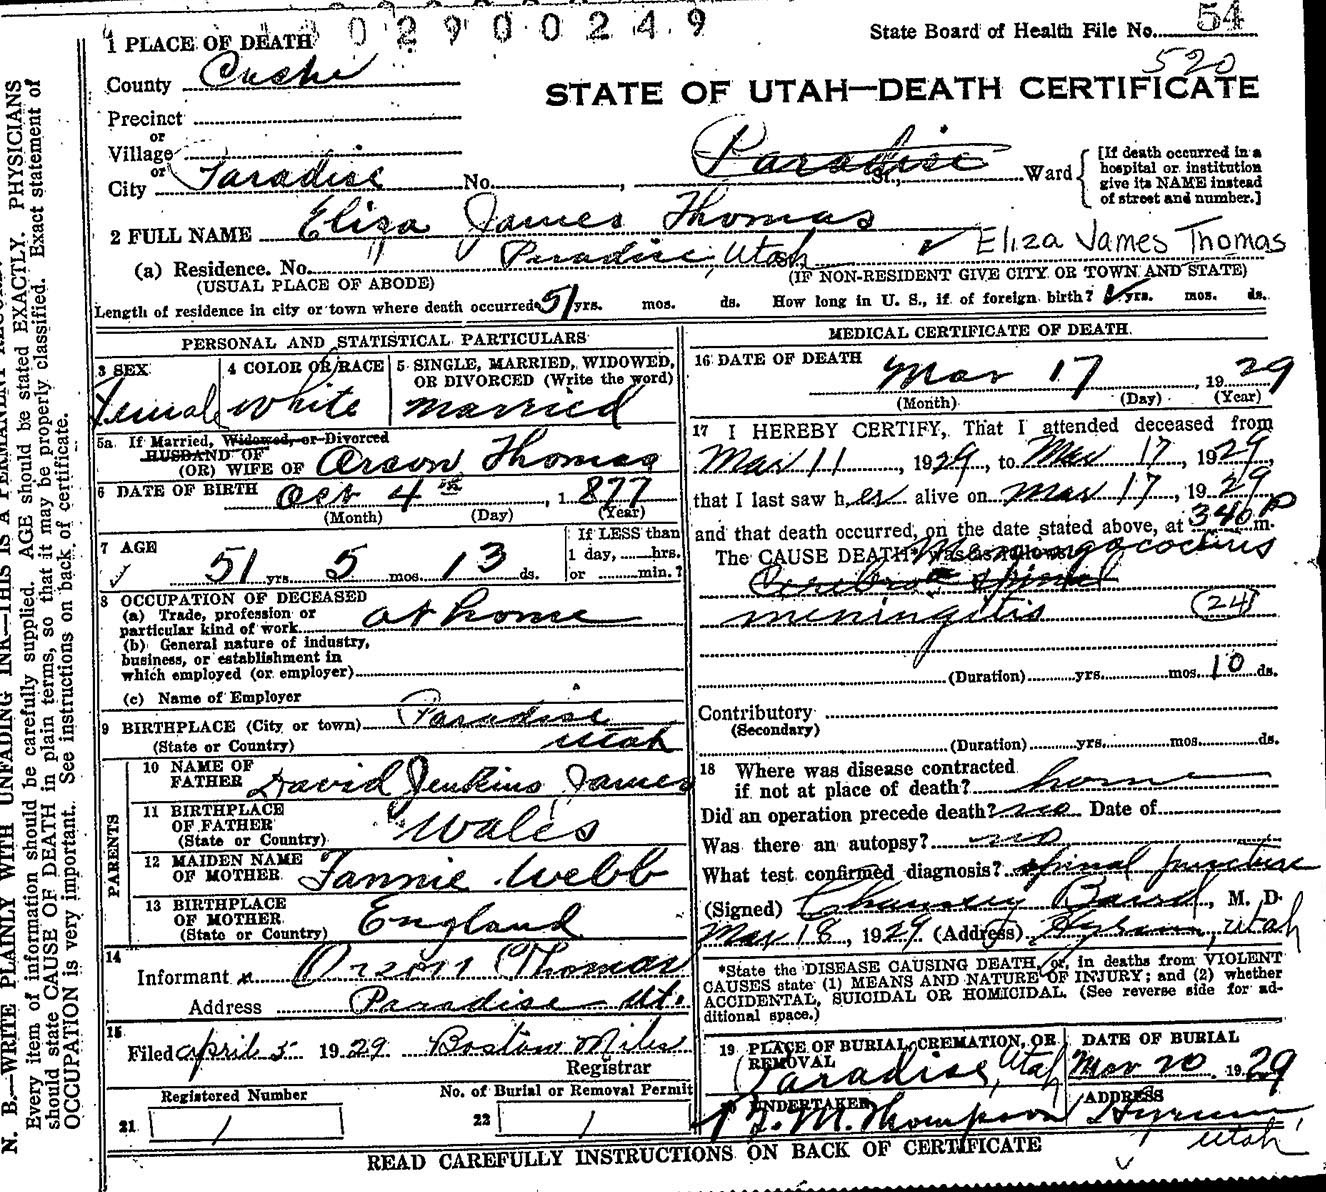 0 2 9 0 0 2 4 9
State Board of Health File No. 54
520
1 PLACE OF DEATH
County Cache
STATE OF UTAH—DEATH CERTIFICATE
Precinct
or
Village
or
City Paradise No. , Paradise St., Ward
[If death occurred in a hospital or institution give its NAME instead of street and number.]
2 FULL NAME Eliza James Thomas
✓ Eliza James Thomas
(a) Residence. No. Paradise, Utah
(USUAL PLACE OF ABODE) (IF NON-RESIDENT GIVE CITY OR TOWN AND STATE)
Length of residence in city or town where death occurred 51 yrs. mos. ds. How long in U. S., if of foreign birth? yrs. mos. ds.
PERSONAL AND STATISTICAL PARTICULARS
3 SEX
Female
4 COLOR OR RACE
White
5 SINGLE, MARRIED, WIDOWED, OR DIVORCED (Write the word)
Married
5a If Married, Widowed, or Divorced
HUSBAND OF
(OR) WIFE OF Orson Thomas
6 DATE OF BIRTH Oct 4th, 1877
(Month) (Day) (Year)
7 AGE
51 yrs. 5 mos. 13 ds.
If LESS than
1 day, ......hrs.
or ........min.?
8 OCCUPATION OF DECEASED
(a) Trade, profession or
particular kind of work at home
(b) General nature of industry,
business, or establishment in
which employed (or employer)
(c) Name of Employer
9 BIRTHPLACE (City or town) Paradise
(State or Country) Utah
PARENTS
10 NAME OF
FATHER David Jenkins James
11 BIRTHPLACE
OF FATHER
(State or Country) Wales
12 MAIDEN NAME
OF MOTHER Fannie Webb
13 BIRTHPLACE
OF MOTHER
(State or Country) England
14
Informant x Orson Thomas
Address Paradise Ut.
15
Filed April 5 1929 Boston Miles
Registrar
Registered Number
21 1
No. of Burial or Removal Permit
22 1
MEDICAL CERTIFICATE OF DEATH.
16 DATE OF DEATH
Mar 17, 1929
(Month) (Day) (Year)
17 I HEREBY CERTIFY, That I attended deceased from
Mar 11, 1929, to Mar 17, 1929
that I last saw her alive on Mar 17, 1929
and that death occurred, on the date stated above, at 340 P m.
The CAUSE DEATH* was as follows:
Cerebro spinal
meningitis (24)
(Duration) yrs. mos. 10 ds.
Contributory
(Secondary)
(Duration) yrs. mos. ds.
18 Where was disease contracted
if not at place of death? home
Did an operation precede death? no Date of
Was there an autopsy? no
What test confirmed diagnosis? spinal puncture
(Signed) Baird, M. D.
Mar 18, 1929 (Address) Hyrum, Utah
*State the DISEASE CAUSING DEATH, or, in deaths from VIOLENT
CAUSES state (1) MEANS AND NATURE OF INJURY; and (2) whether
ACCIDENTAL, SUICIDAL OR HOMICIDAL. (See reverse side for ad-
ditional space.)
19 PLACE OF BURIAL, CREMATION, OR
REMOVAL
Paradise, Utah
DATE OF BURIAL
Mar 20, 1929
UNDERTAKER
J. M. Thompson
ADDRESS
Hyrum
Utah
READ CAREFULLY INSTRUCTIONS ON BACK OF CERTIFICATE
N. B.—WRITE PLAINLY WITH UNFADING INK—THIS IS A PERMANENT
Every item of information should be carefully supplied. AGE should be stated EXACTLY. PHYSICIANS
should state CAUSE OF DEATH in plain terms, so that it may be properly classified. Exact statement of
OCCUPATION is very important. See instructions on back of certificate.